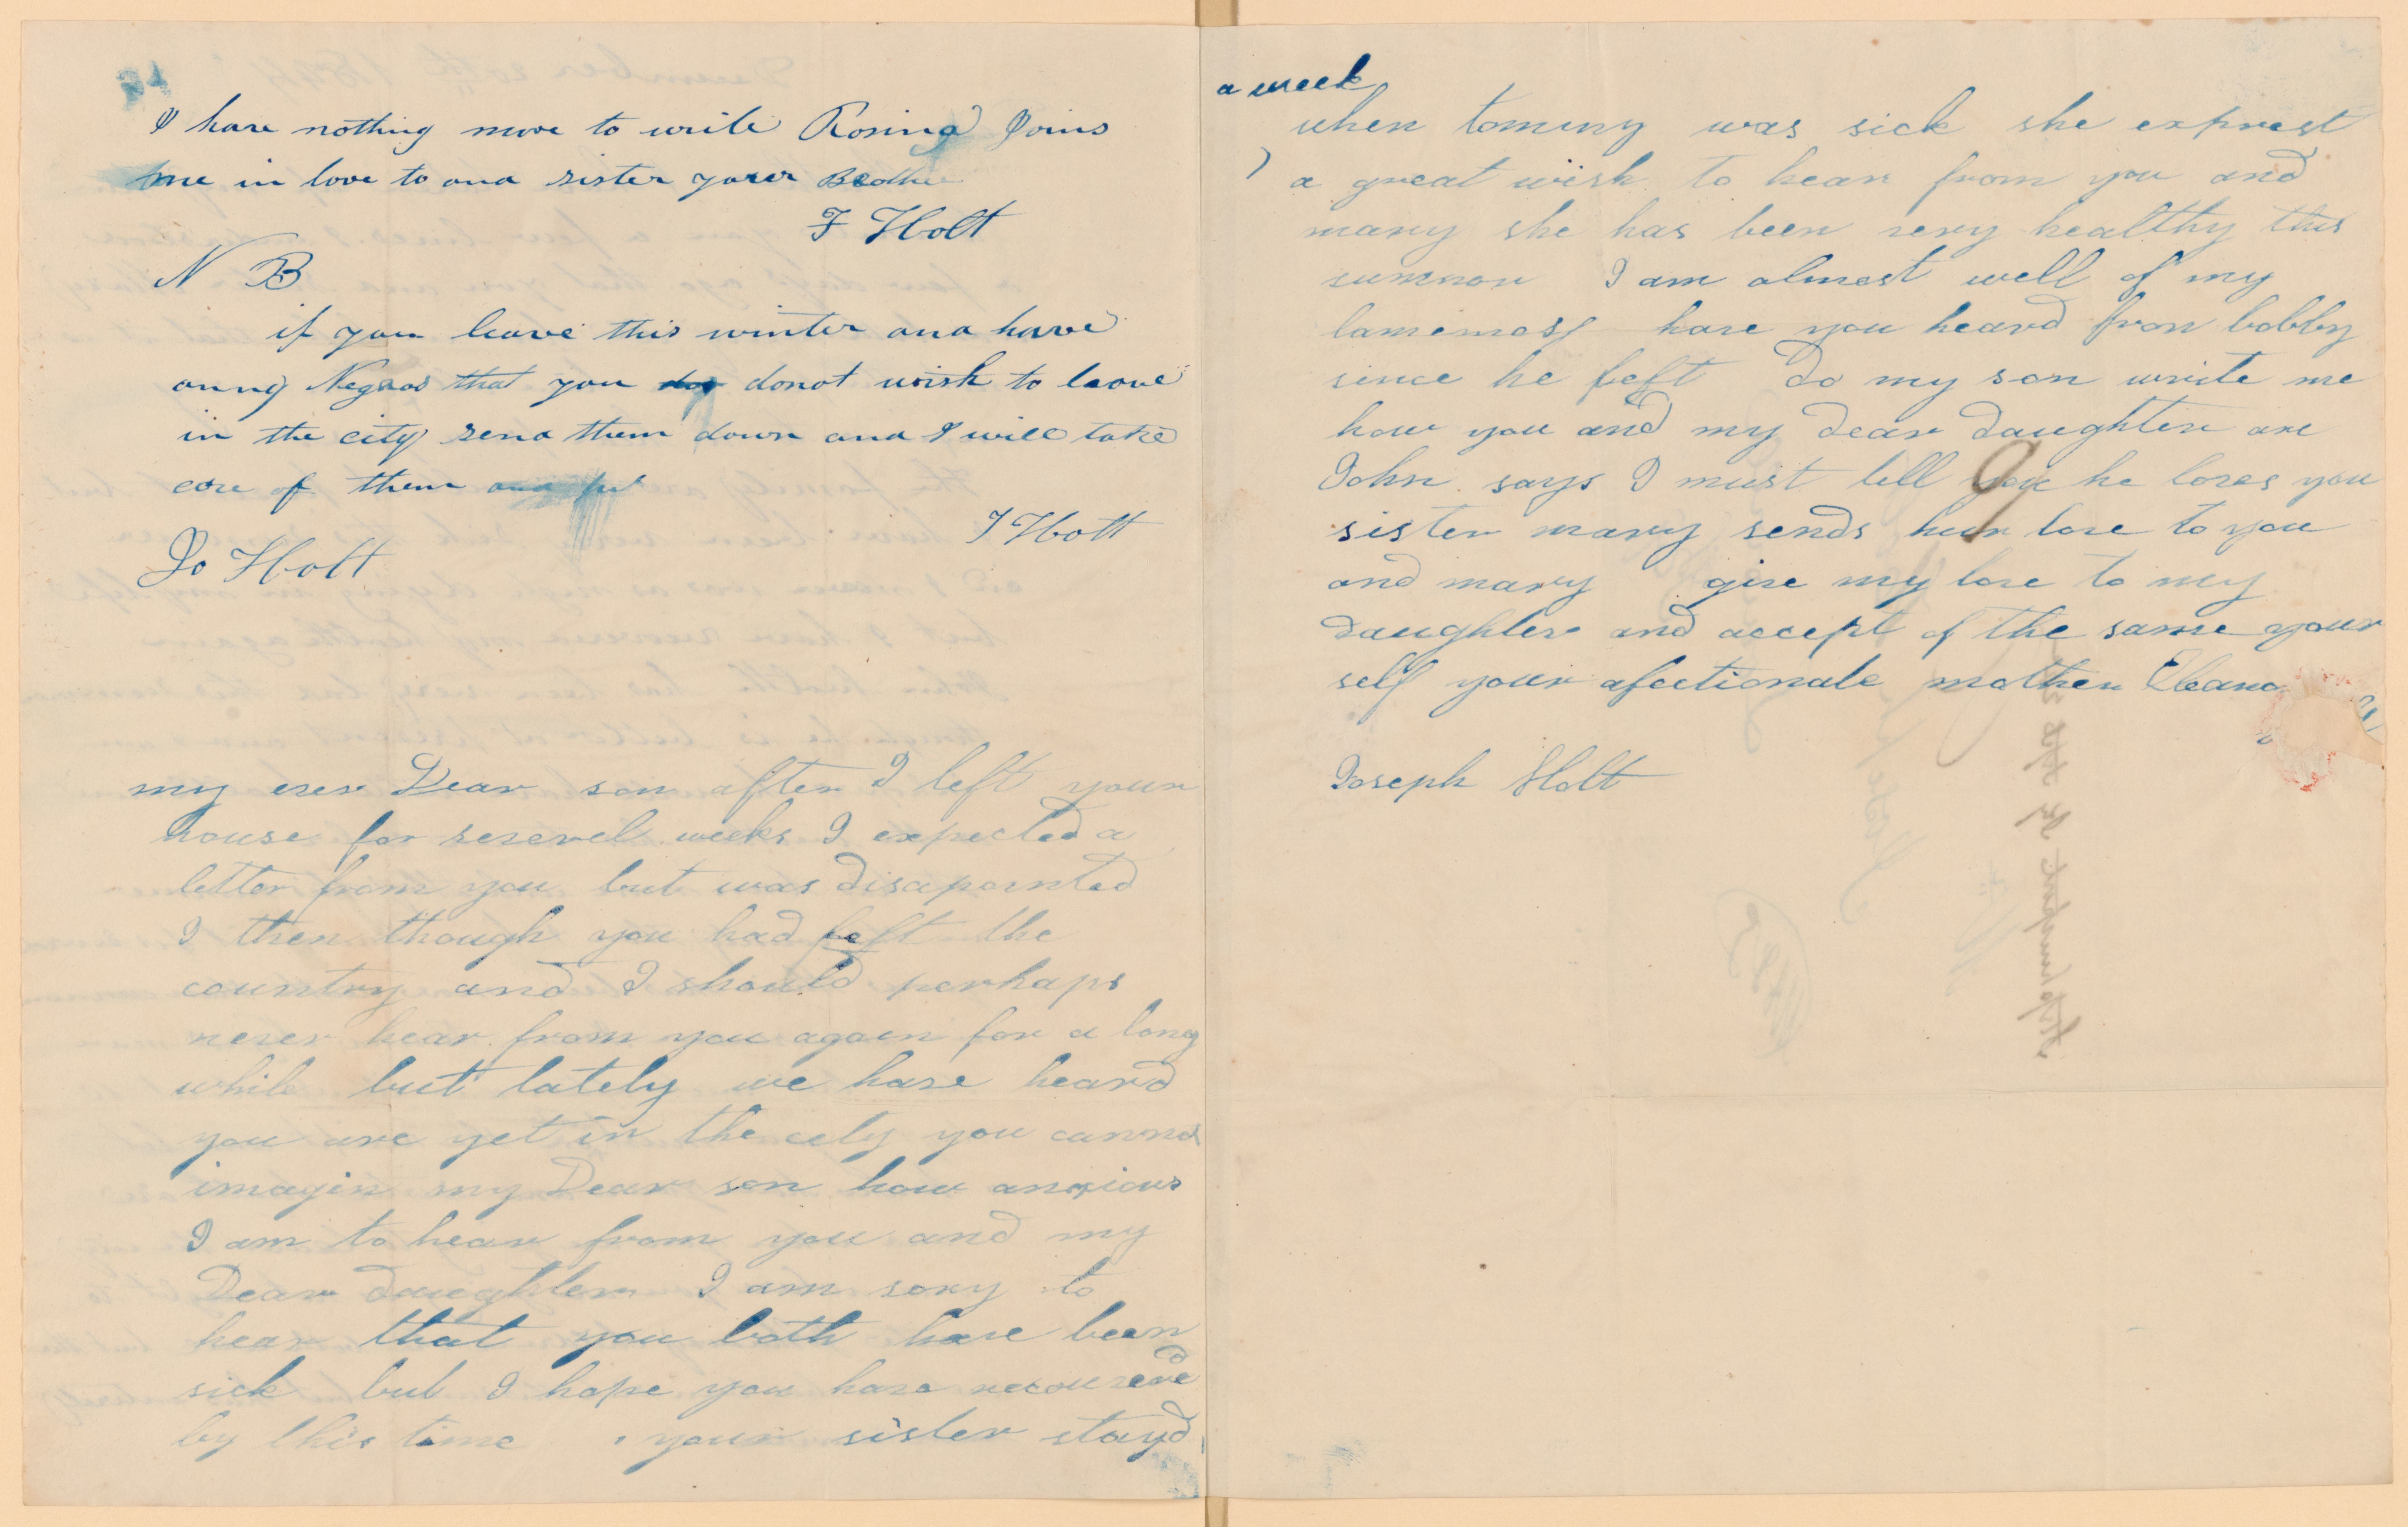 I have nothing more to write Rosina Joins
me in love to and sister your Brother
T Holt
N B
if you leave this winter and have
anny Negros that you donot wish to leave
in the city send them down and I will take
care of them
T Holt
Jo Holt
my ever Dear son after I left your
house for severel weeks I expected a
letter from you but was disapointed
I then though you had left the
country and I should perhaps
never hear from you again for a long
while but lately we have heard
you are yet in the city you cannot
imagin my Dear son how anxious
I am to hear from you and my
Dear daughter I am sory to
hear that you both have been
sick but I hope you have recovered
by this time your sister stayd
a week
when tommy was sick she exprest
a great wish to hear from you and
mary she has been very healthy this
summer I am almost well of my
lameness have you heard from bobby
since he left do my son write me
how you and my dear daughter are
John says I must tell you he loves you
sister mary sends hur love to you
and mary give my love to my
daughter and accept of the same your
self your afectionate mother Eleanor
Joseph Holt